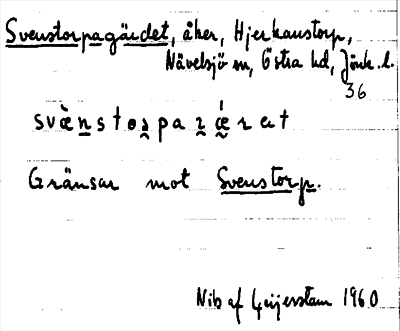 Svenstorpagärdet, åker, Hjerkanstorp,
Nävelsjö sn, Östra hd, Jönk. l.
36
Gränsar mot Svenstorp.
Nib af Geijerstam 1960